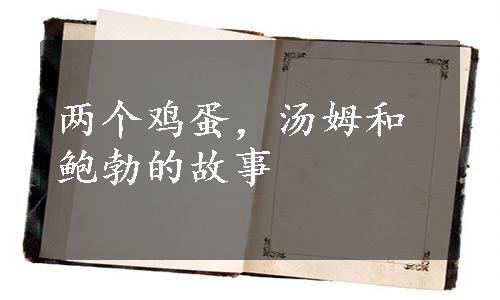 两个鸡蛋，汤姆和
鲍勃的故事